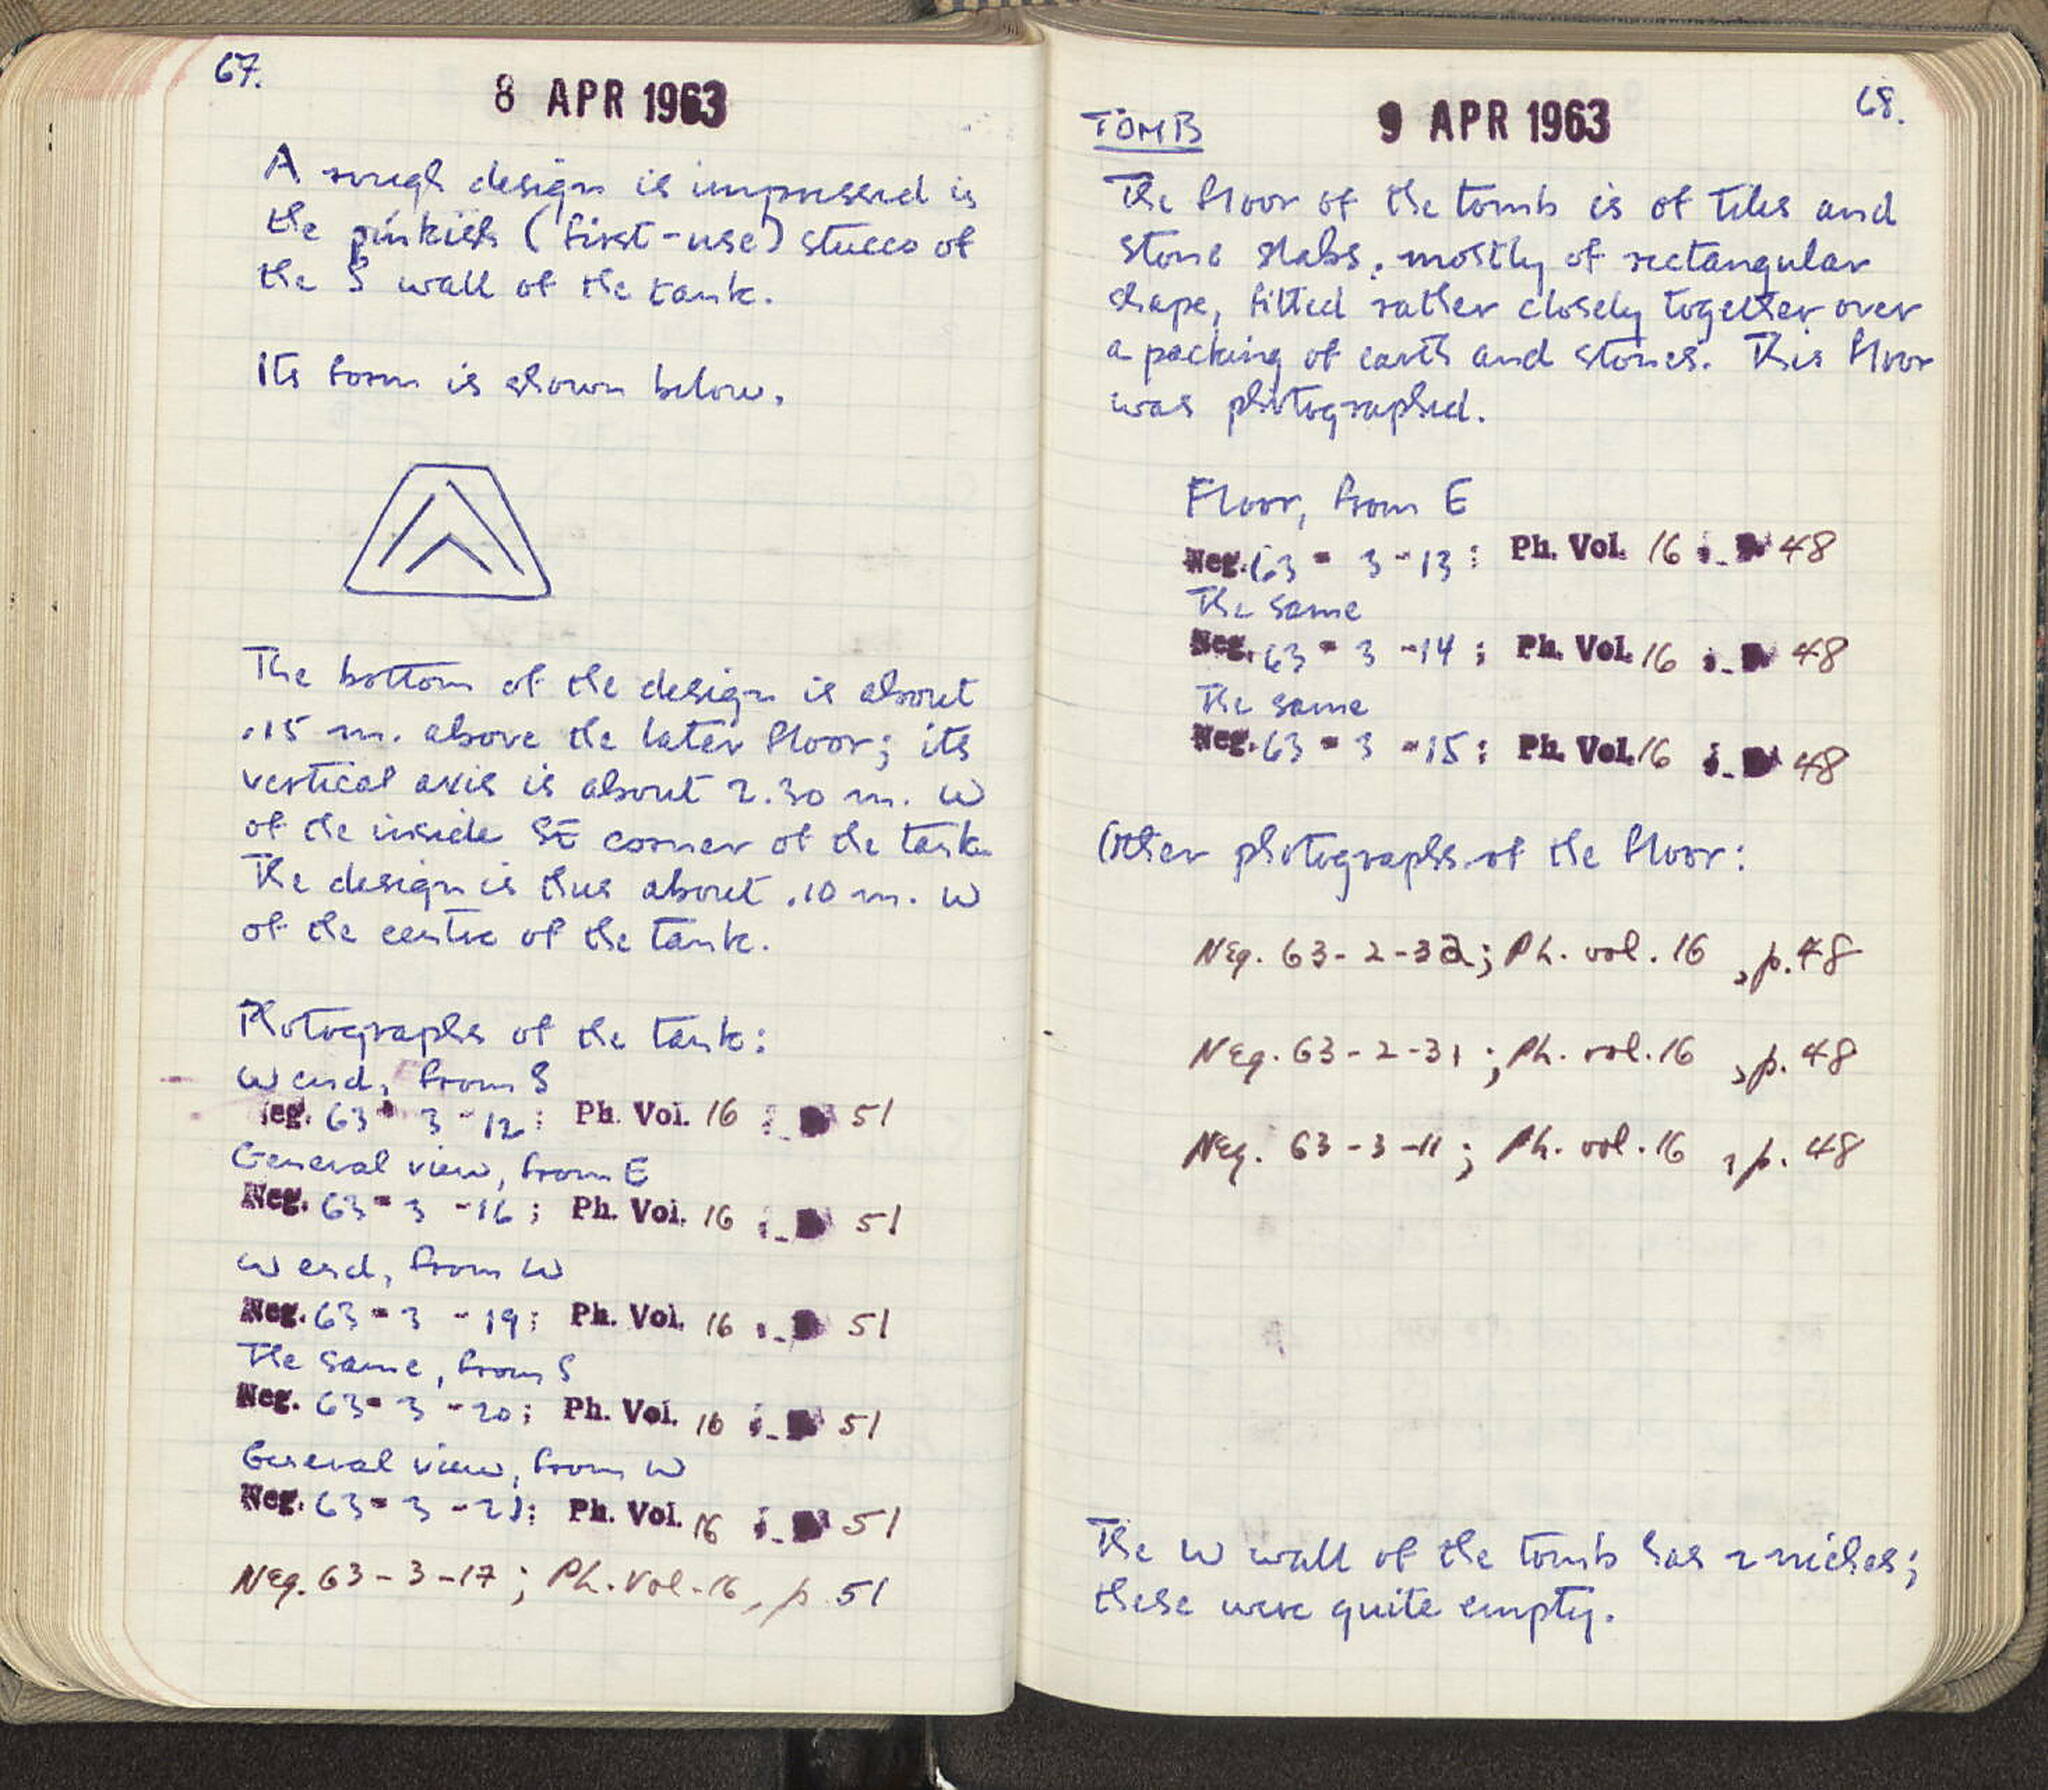 67.
8 APR 1963
A rough design is impressed in
the pinkish (first-use) stucco of
the S wall of the tank.
Its form is shown below.
The bottom of the design is about
.15 m. above the later floor; its
vertical axis is about 2.30 m. W
of the inside SE corner of the tank.
The design is thus about .10 m. W
of the centre of the tank.
Photographs of the tank:
W end, from S
Neg. 63-3-12; Ph. Vol. 16 51
General view, from E
Neg. 63-3-16; Ph. Vol. 16 51
W end, from W
Neg. 63-3-19; Ph. Vol. 16 51
The same, from S
Neg. 63-3-20; Ph. Vol. 16 51
General view, from W
Neg. 63-3-21; Ph. Vol. 16 51
Neg. 63-3-17; Ph. Vol. 16, p. 51
68.
TOMB
9 APR 1963
The floor of the tomb is of tiles and
stone slabs, mostly of rectangular
shape, fitted rather closely together over
a packing of earth and stones. This floor
was photographed.
Floor, from E
Neg. 63-3-13; Ph. Vol. 16 48
The same
Neg. 63-3-14; Ph. Vol. 16 48
The same
Neg. 63-3-15; Ph. Vol. 16 48
Other photographs of the floor:
Neg. 63-2-32; Ph. vol. 16, p. 48
Neg. 63-2-31; Ph. vol. 16, p. 48
Neg. 63-3-11; Ph. vol. 16, p. 48
The W wall of the tomb has 2 niches;
these were quite empty.